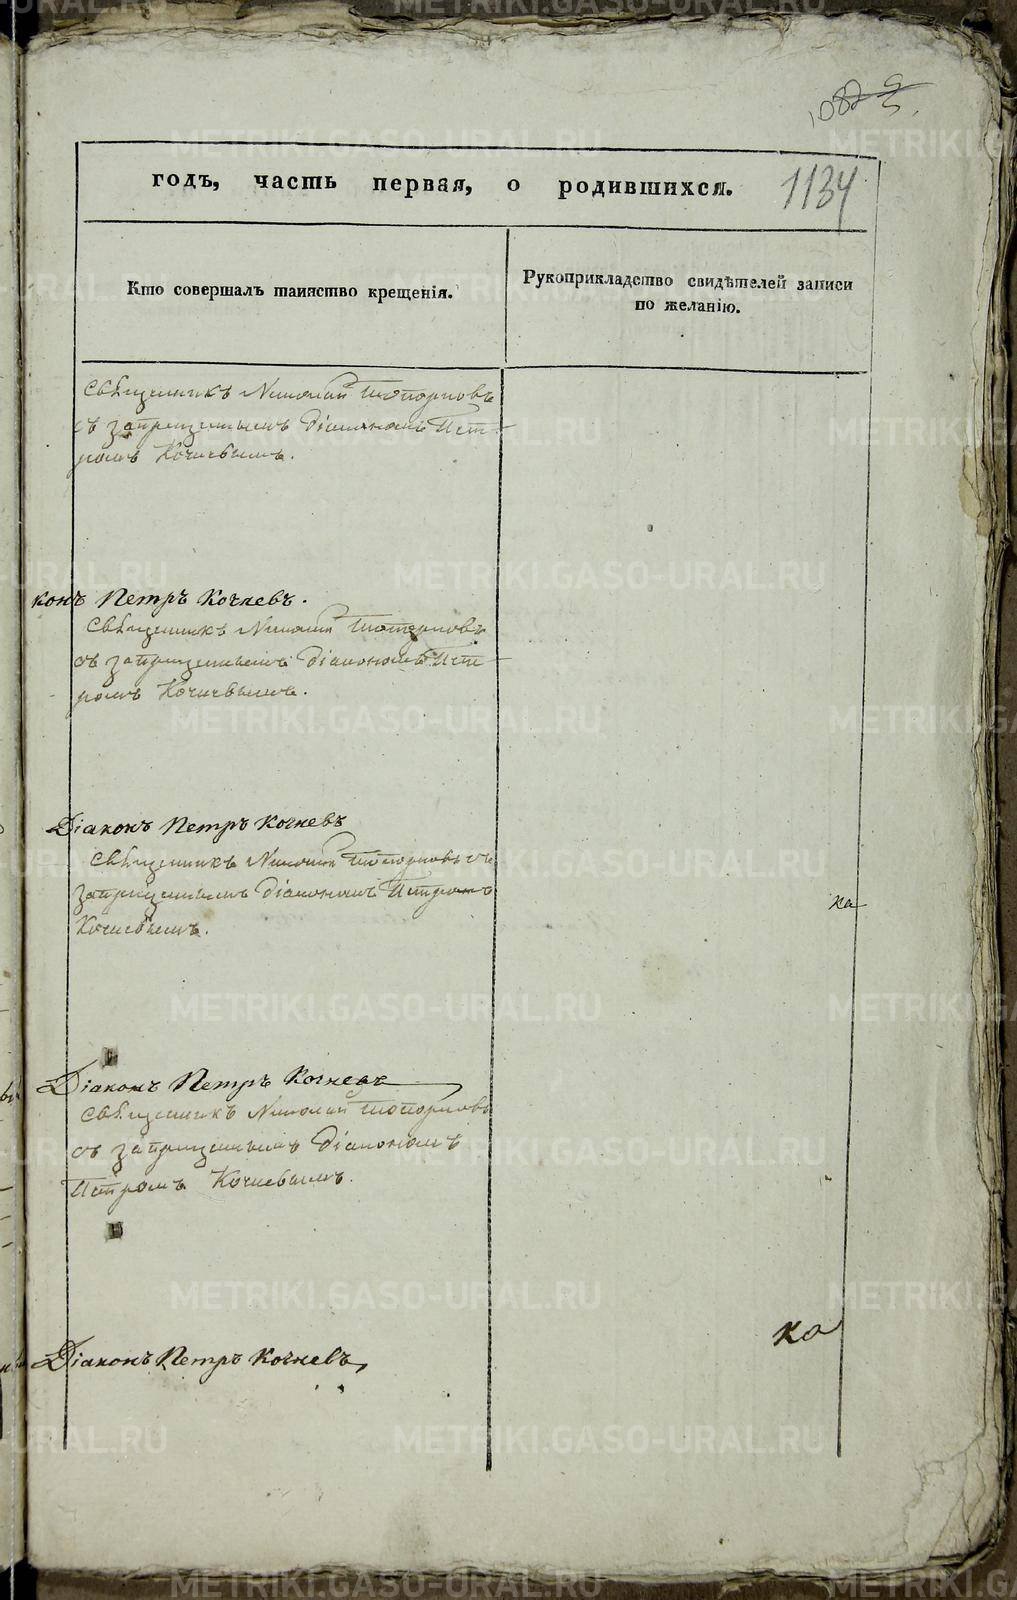 1134
годъ, часть первая, о родившихся.
Кто совершалъ таинство крещенія.
Рукоприкладство свидѣтелей записи
по желанію.
Священникъ Николай Топорковъ
съ запрещеннымъ Діакономъ Пет-
ромъ Кочневымъ.
конъ Петръ Кочневъ.
Священникъ Николай Топорковъ
съ запрещеннымъ Діакономъ Пет-
ромъ Кочневымъ.
Діаконъ Петръ Кочневъ
Священникъ Николай Топорковъ съ
запрещеннымъ Діакономъ Петромъ
Кочневымъ.
ка
Діаконъ Петръ Кочневъ
Священникъ Николай Топорковъ
съ запрещеннымъ Діакономъ
Петромъ Кочневымъ.
ко
Діаконъ Петръ Кочневъ,
METRIKI.GASO-URAL.RU